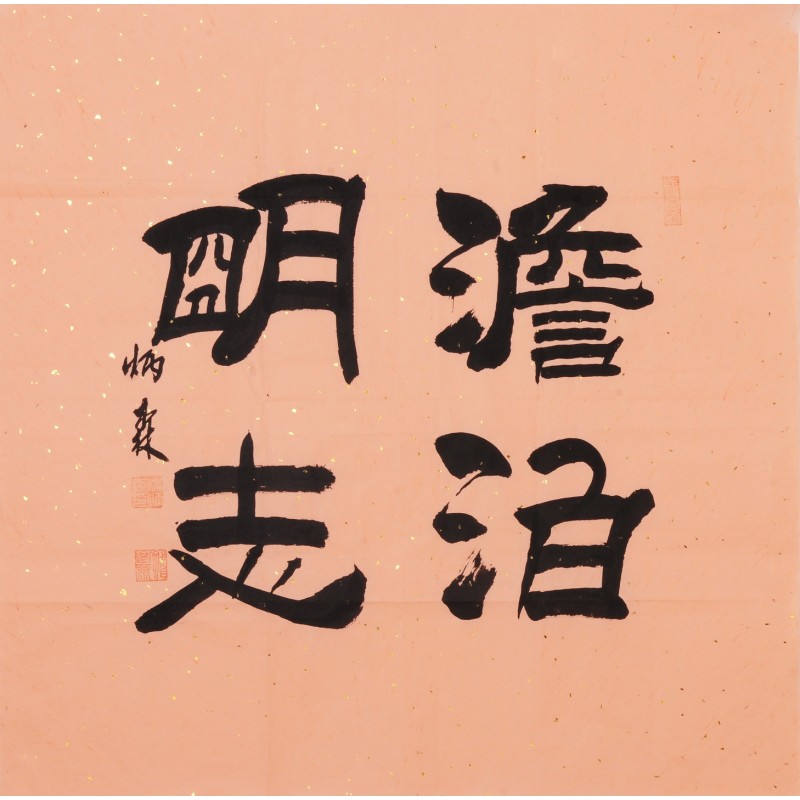 澹泊
明志
炳森